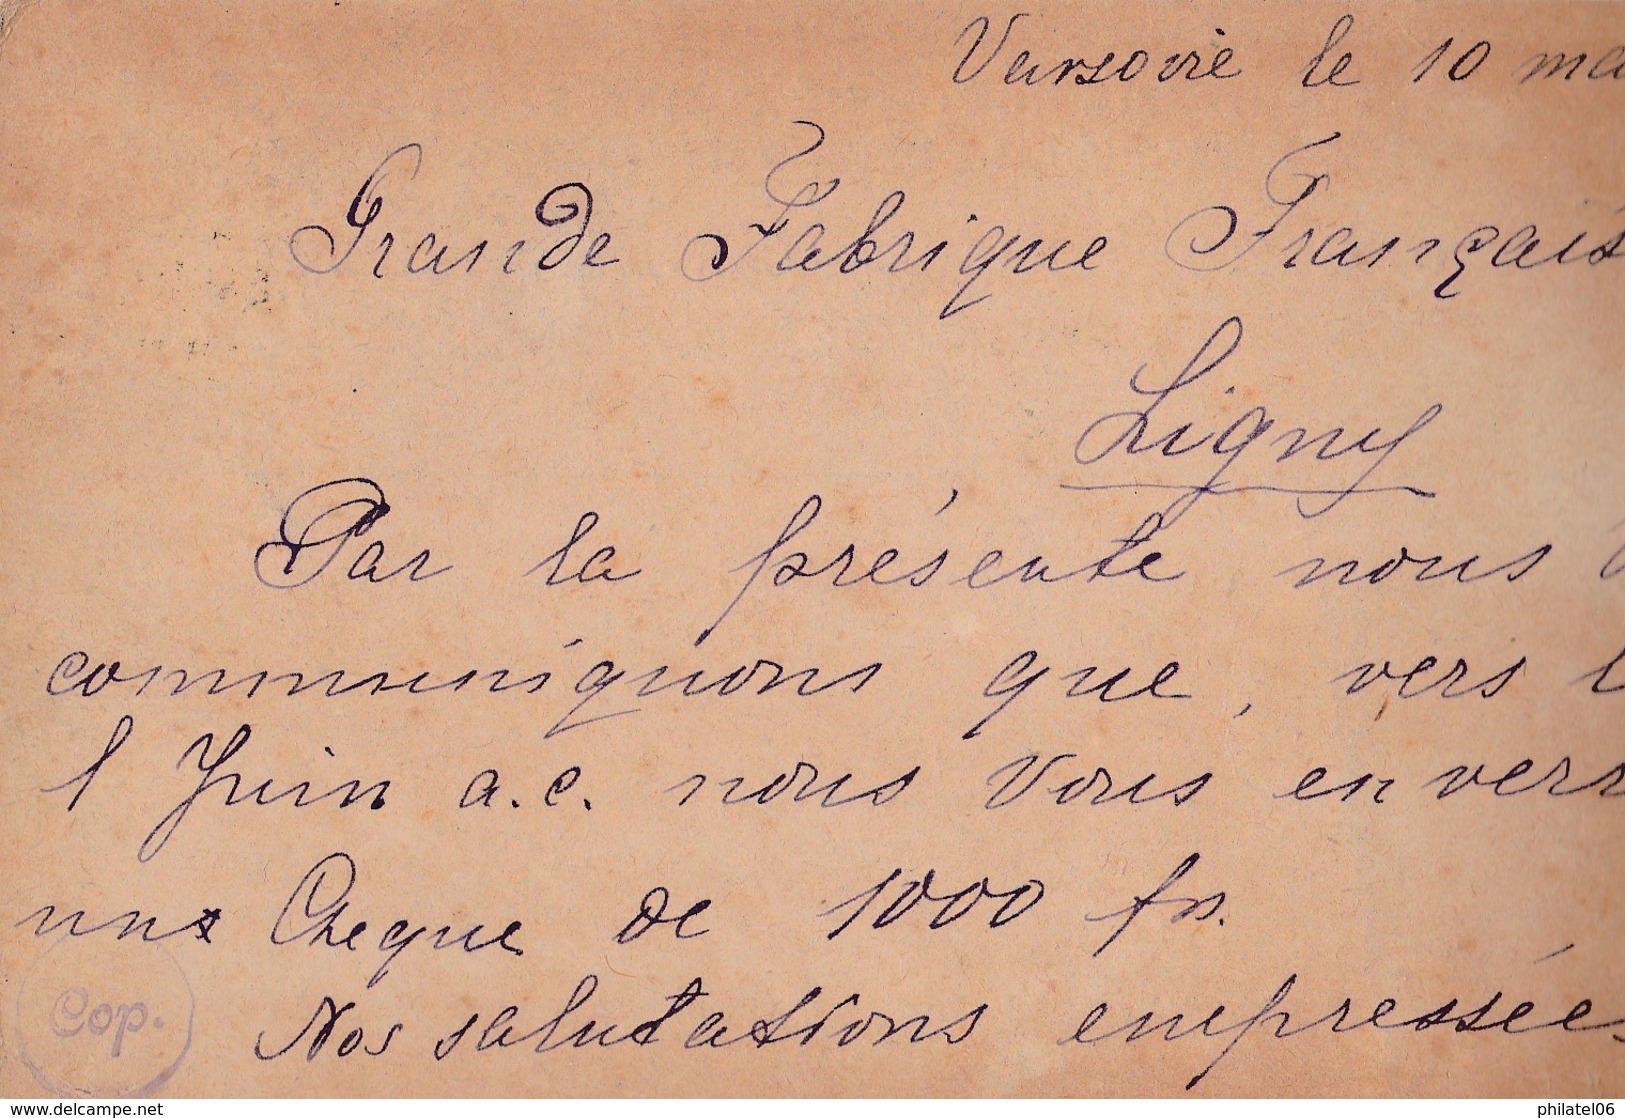 Varsovie le 10 ma
Grande Fabrique Français
Ligny
Par la présente nous
communiquons que, vers l
1 Juin a.c. nous Vous enverr
une Cheque de 1000 frs.
Cop.
Nos salutations empressées
www.delcampe.net
philatel06